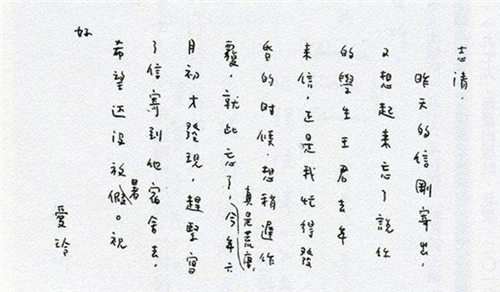 志清,
昨天的信剛寄出,
又想起来忘了說你
的學生王君去年
来信,正是我忙得發
昏的時候,想稍遲作
覆,就此忘了,真是荒唐,今年六
月初才發現,趕緊寫
了信寄到他宿舍去,
希望还没放暑假。祝
好
愛玲